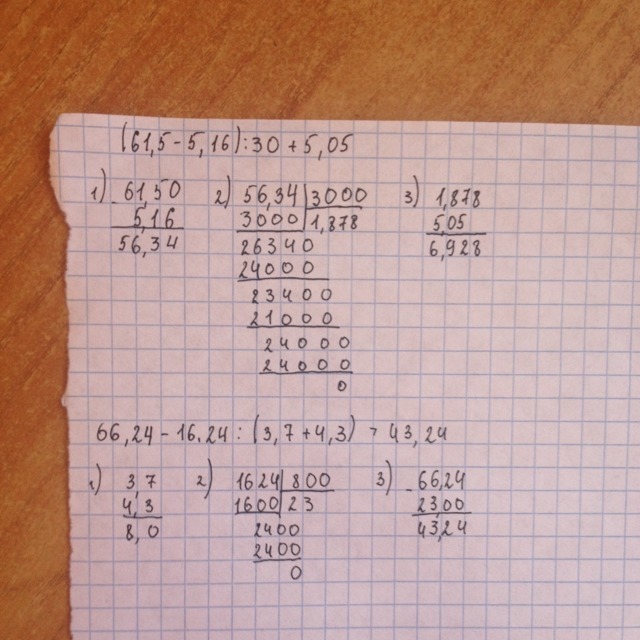 (61,5-5,16):30+5,05
1) 61,50 2) 56,34|3000 3) 1,878
- 5,16 3000|1,878 5,05
56,34 26340 6,928
24000
23400
21000
24000
24000
0
66,24-16.24:(3,7+4,3) = 43,24
1) 3,7 2) 1624|800 3) -66,24
4,3 1600|23 2300
8,0 2400 43,24
2400
0